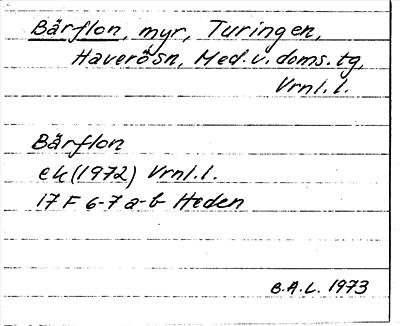 Bärflon, myr, Turingen,
Haverösn, Med. v. doms. tg,
Vrml. l.
Bärflon
ek (1972) Vrml. l.
17 F 6-7 a-b Heden
B.A.L. 1973